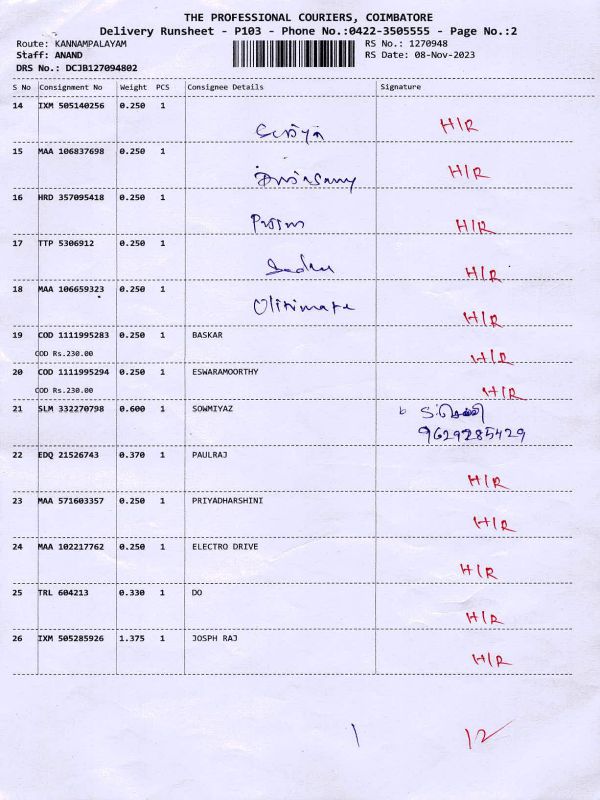 THE PROFESSIONAL COURIERS, COIMBATORE
Delivery Runsheet - P103 - Phone No.:0422-3505555 - Page No.:2
Route: KANNAMPALAYAM RS No.: 1270948
Staff: ANAND RS Date: 08-Nov-2023
DRS No.: DCJB127094802
S No Consignment No Weight PCS Consignee Details Signature
14 IXM 505140256 0.250 1 H/R
15 MAA 106837698 0.250 1 H/R
16 HRD 357095418 0.250 1 H/R
17 TTP 5306912 0.250 1 H/R
18 MAA 106659323 0.250 1 H/R
19 COD 1111995283 0.250 1 BASKAR H/R
COD Rs.230.00
20 COD 1111995294 0.250 1 ESWARAMOORTHY H/R
COD Rs.230.00
21 SLM 332270798 0.600 1 SOWMIYAZ
9629285429
22 EDQ 21526743 0.370 1 PAULRAJ H/R
23 MAA 571603357 0.250 1 PRIYADHARSHINI H/R
24 MAA 102217762 0.250 1 ELECTRO DRIVE H/R
25 TRL 604213 0.330 1 DO H/R
26 IXM 505285926 1.375 1 JOSPH RAJ H/R
1 12